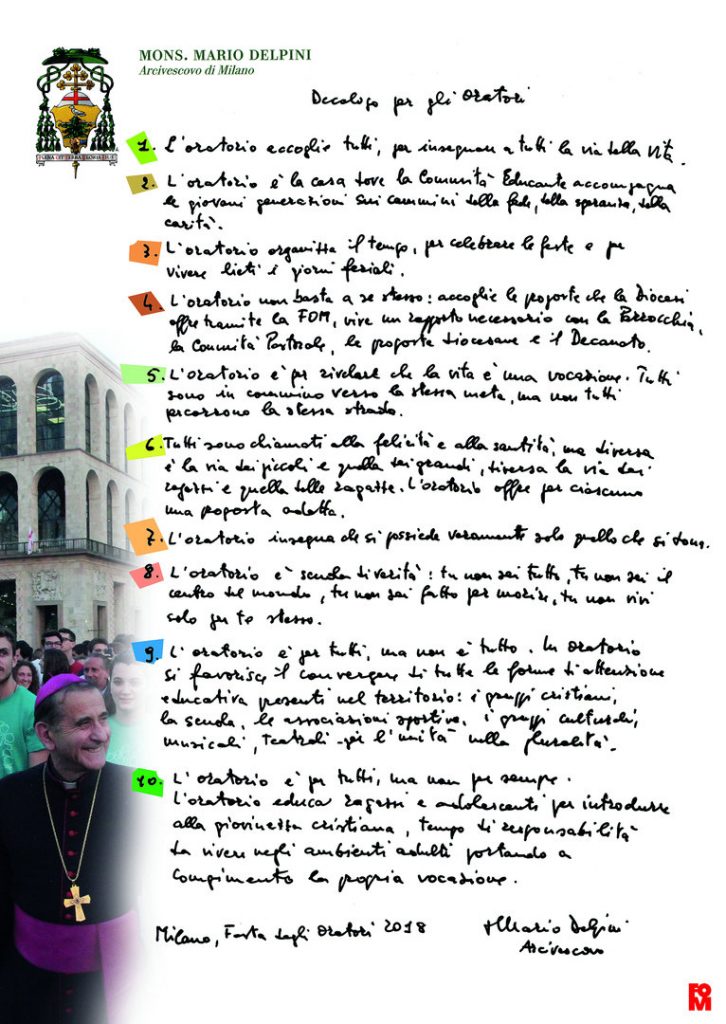 MONS. MARIO DELPINI
Arcivescovo di Milano
Decalogo per gli Oratori
1. L'oratorio accoglie tutti, per insegnare a tutti la via della vita.
2. L'oratorio è la casa dove la Comunità Educante accompagna
le giovani generazioni sui cammini della fede, della speranza, della
carità.
3. L'oratorio organizza il tempo, per celebrare le feste e per
vivere lieti i giorni feriali.
4. L'oratorio non basta a se stesso: accoglie le proposte che la Diocesi
offre tramite la FOM, vive un rapporto necessario con la Parrocchia,
la Comunità Pastorale, le proposte diocesane e il Decanato.
5. L'oratorio è per rivelare che la vita è una vocazione. Tutti
sono in cammino verso la stessa meta, ma non tutti
percorrono la stessa strada.
6. Tutti sono chiamati alla felicità e alla santità, ma diversa
è la via dei piccoli e quella dei grandi, diversa la via dei
ragazzi e quella delle ragazze. L'oratorio offre per ciascuno
una proposta adatta.
7. L'oratorio insegna che si possiede veramente solo quello che si dona.
8. L'oratorio è scuola di verità: tu non sei tutto, tu non sei il
centro del mondo, tu non sei fatto per morire, tu non vivi
solo per te stesso.
9. L'oratorio è per tutti, ma non è tutto. In oratorio
si favorisce il convergere di tutte le forme di attenzione
educativa presenti nel territorio: i gruppi cristiani,
la scuola, le associazioni sportive, i gruppi culturali,
musicali, teatrali per l'unità nella pluralità.
10. L'oratorio è per tutti, ma non per sempre.
L'oratorio educa ragazzi e adolescenti per introdurre
alla giovinezza cristiana, tempo di responsabilità
da vivere negli ambienti adulti portando a
compimento la propria vocazione.
Milano, Festa degli Oratori 2018
+ Mario Delpini
Arcivescovo
FOM